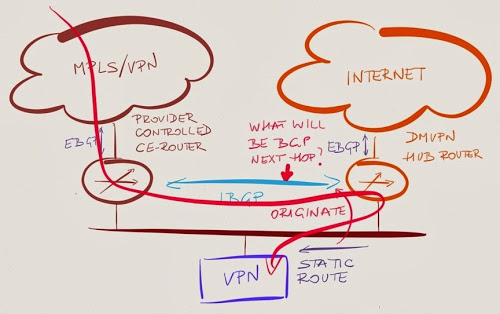 MPLS/VPN
INTERNET
PROVIDER
CONTROLLED
CE-ROUTER
EBGP
WHAT WILL
BE BGP
NEXT-HOP?
EBGP
DMVPN
HUB ROUTER
IBGP
ORIGINATE
STATIC
ROUTE
VPN